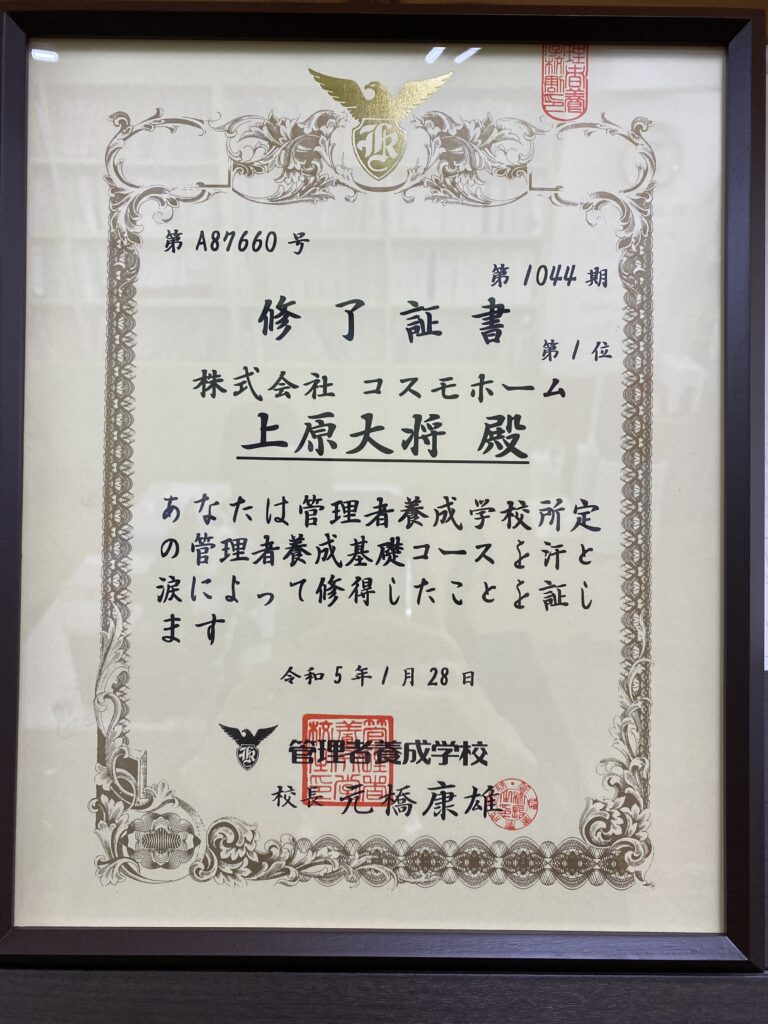 第 A87660 号
第 1044 期
修了証書
第 1 位
株式会社 コスモホーム
上原大将 殿
あなたは管理者養成学校所定
の管理者養成基礎コースを汗と
涙によって修得したことを証し
ます
令和5年1月28日
管理者養成学校
校長 元橋康雄